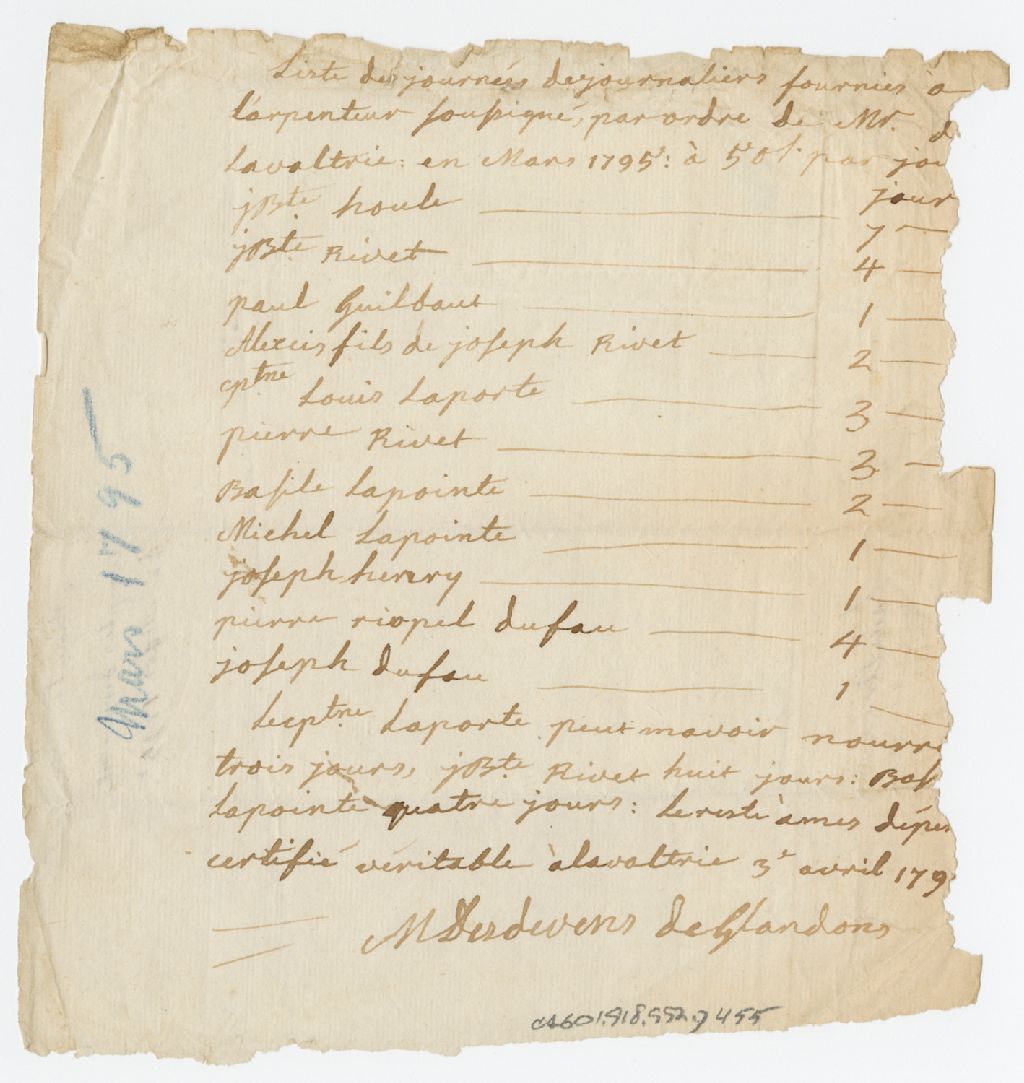 Liste des journées de journaliers fournies à
l'arpenteur soussigné, par ordre de Mr. d
Lavaltrie: en Mars 1795: à 50s. par jou
jour
jBte houle 7
jBte Rivet 4
paul Guilbaut 1
Alexis fils de joseph Rivet 2
cptne Louis Laporte 3
pierre Rivet 3
Basile Lapointe 2
Michel Lapointe 1
joseph henry 1
pierre riopel dufau 4
joseph dufau 1
Le cptne Laporte peut mavoir nourri
trois jours, jBte Rivet huit jours: Bas
lapointe quatre jours: Le reste à mes dépen
certifié véritable à lavaltrie 3e avril 179
M Desdevens de Glandons
Mars 1795
CA601.S18.SS2.P455